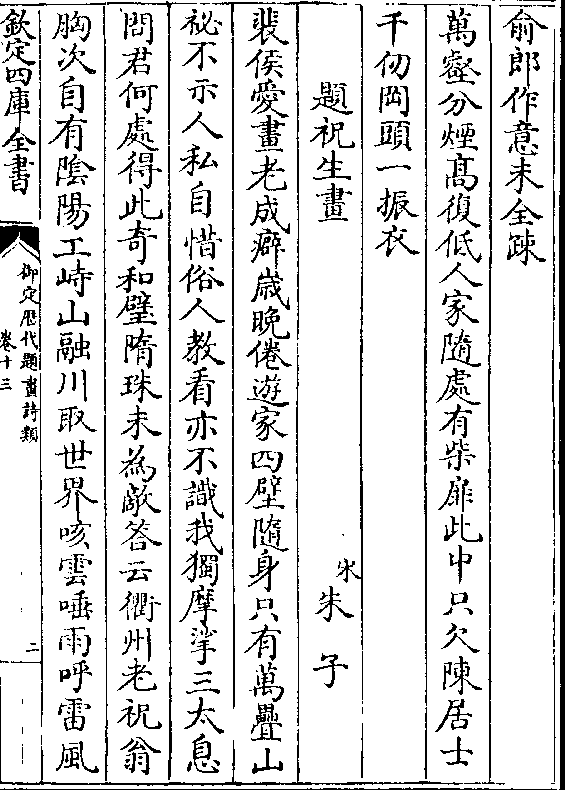 俞郎作意未全疎
萬壑分煙髙復低人家隨處有柴扉此中只欠陳居士
千仞岡頭一振衣
題祝生畫
宋朱子
裴侯愛畫老成癖嵗晚倦遊家四壁隨身只有萬疊山
祕不示人私自惜俗人教看亦不識我獨摩挲三太息
問君何處得此奇和璧隋珠未為敵答云衢州老祝翁
胸次自有隂陽工峙山融川取世界咳雲唾雨呼雷風
欽定四庫全書
御定歴代題畫詩類
卷十三
二